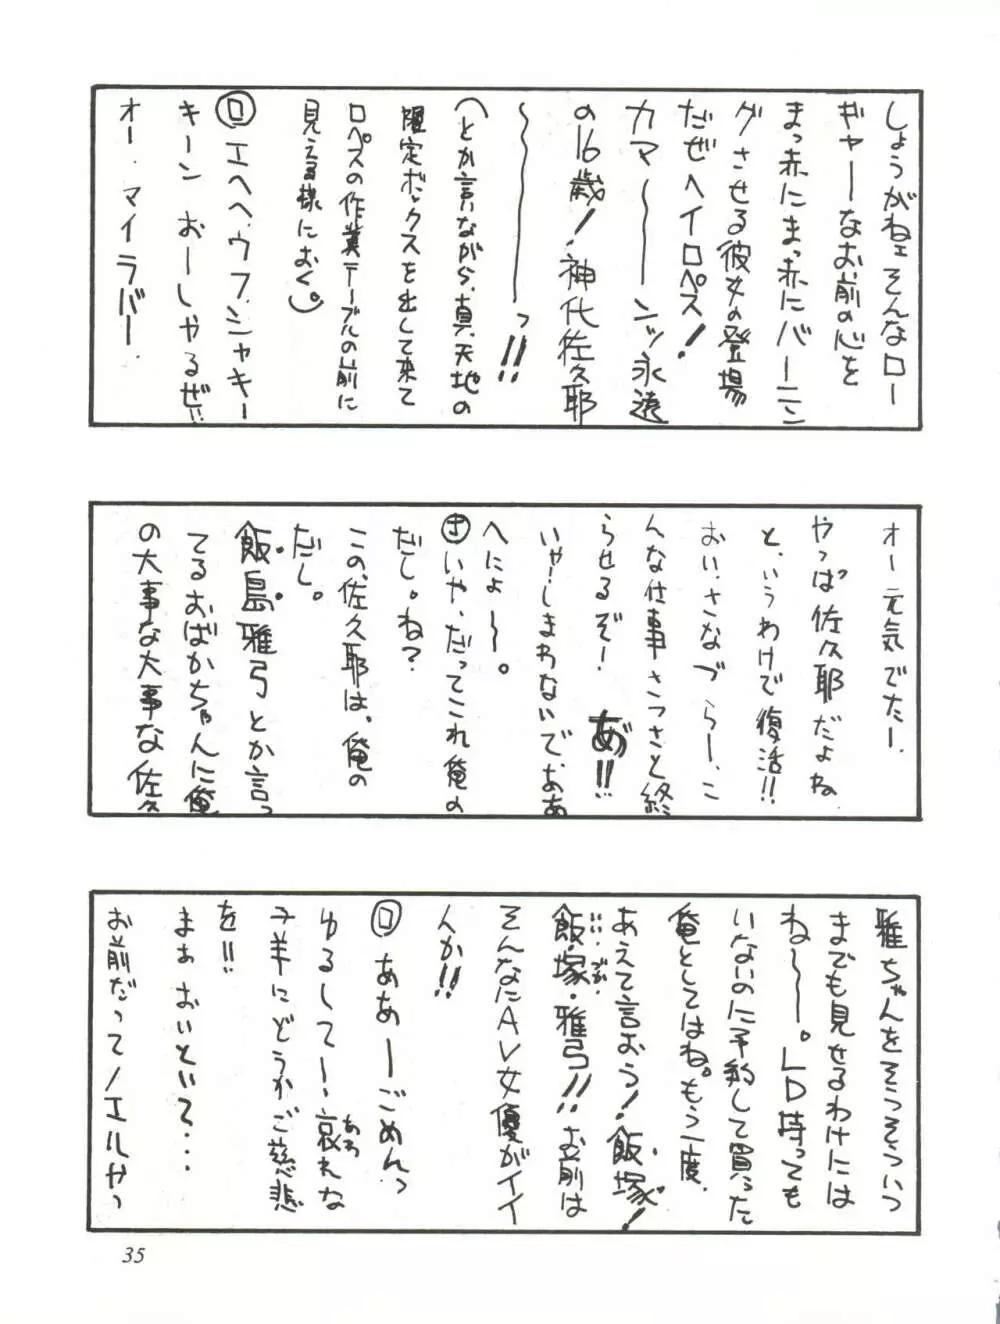 しょうがねェそんなロー
ギャーなお前の心を
まっ赤にまっ赤にバーニン
グさせる彼女の登場
だぜヘイロペス！
カマ〜〜ンッ永遠
の16歳！神代佐久耶
〜〜〜〜っ!!
（とか言いながら、真・天地の
限定ボックスを出して来て
ロペスの作業テーブルの前に
見える様におく。）
ロ エヘヘ、ウフ、シャキー
キーン おーしやるぜ!!
オー・マイラバー・
オー元気でたー、
やっぱ佐久耶だよね、
と、いうわけで復活!!
おい、さなづらー、こ
んな仕事さっさと終
らせるぞー！あ゛!!
いやーしまわないでおああ
へによ〜。
さ いや、だってこれ俺の
だし。ね？
この、佐久耶は、俺の
だし。
飯島雅弓とか言っ
てるおばかちゃんに俺
の大事な大事な佐久
雅ちゃんをそうそういつ
までも見せるわけには
ね〜〜。LD持っても
いないのに予約して買った
俺としてはね。もう一度、
あえて言おう！飯塚！
飯・塚・雅弓!!お前は
そんなにAV女優がイイ
んか!!
ロ ああーごめんっ
ゆるしてー、哀れな
子羊にどうかご慈悲
を!!
まぁ おいといて・・・
お前だってノエルやっ
35